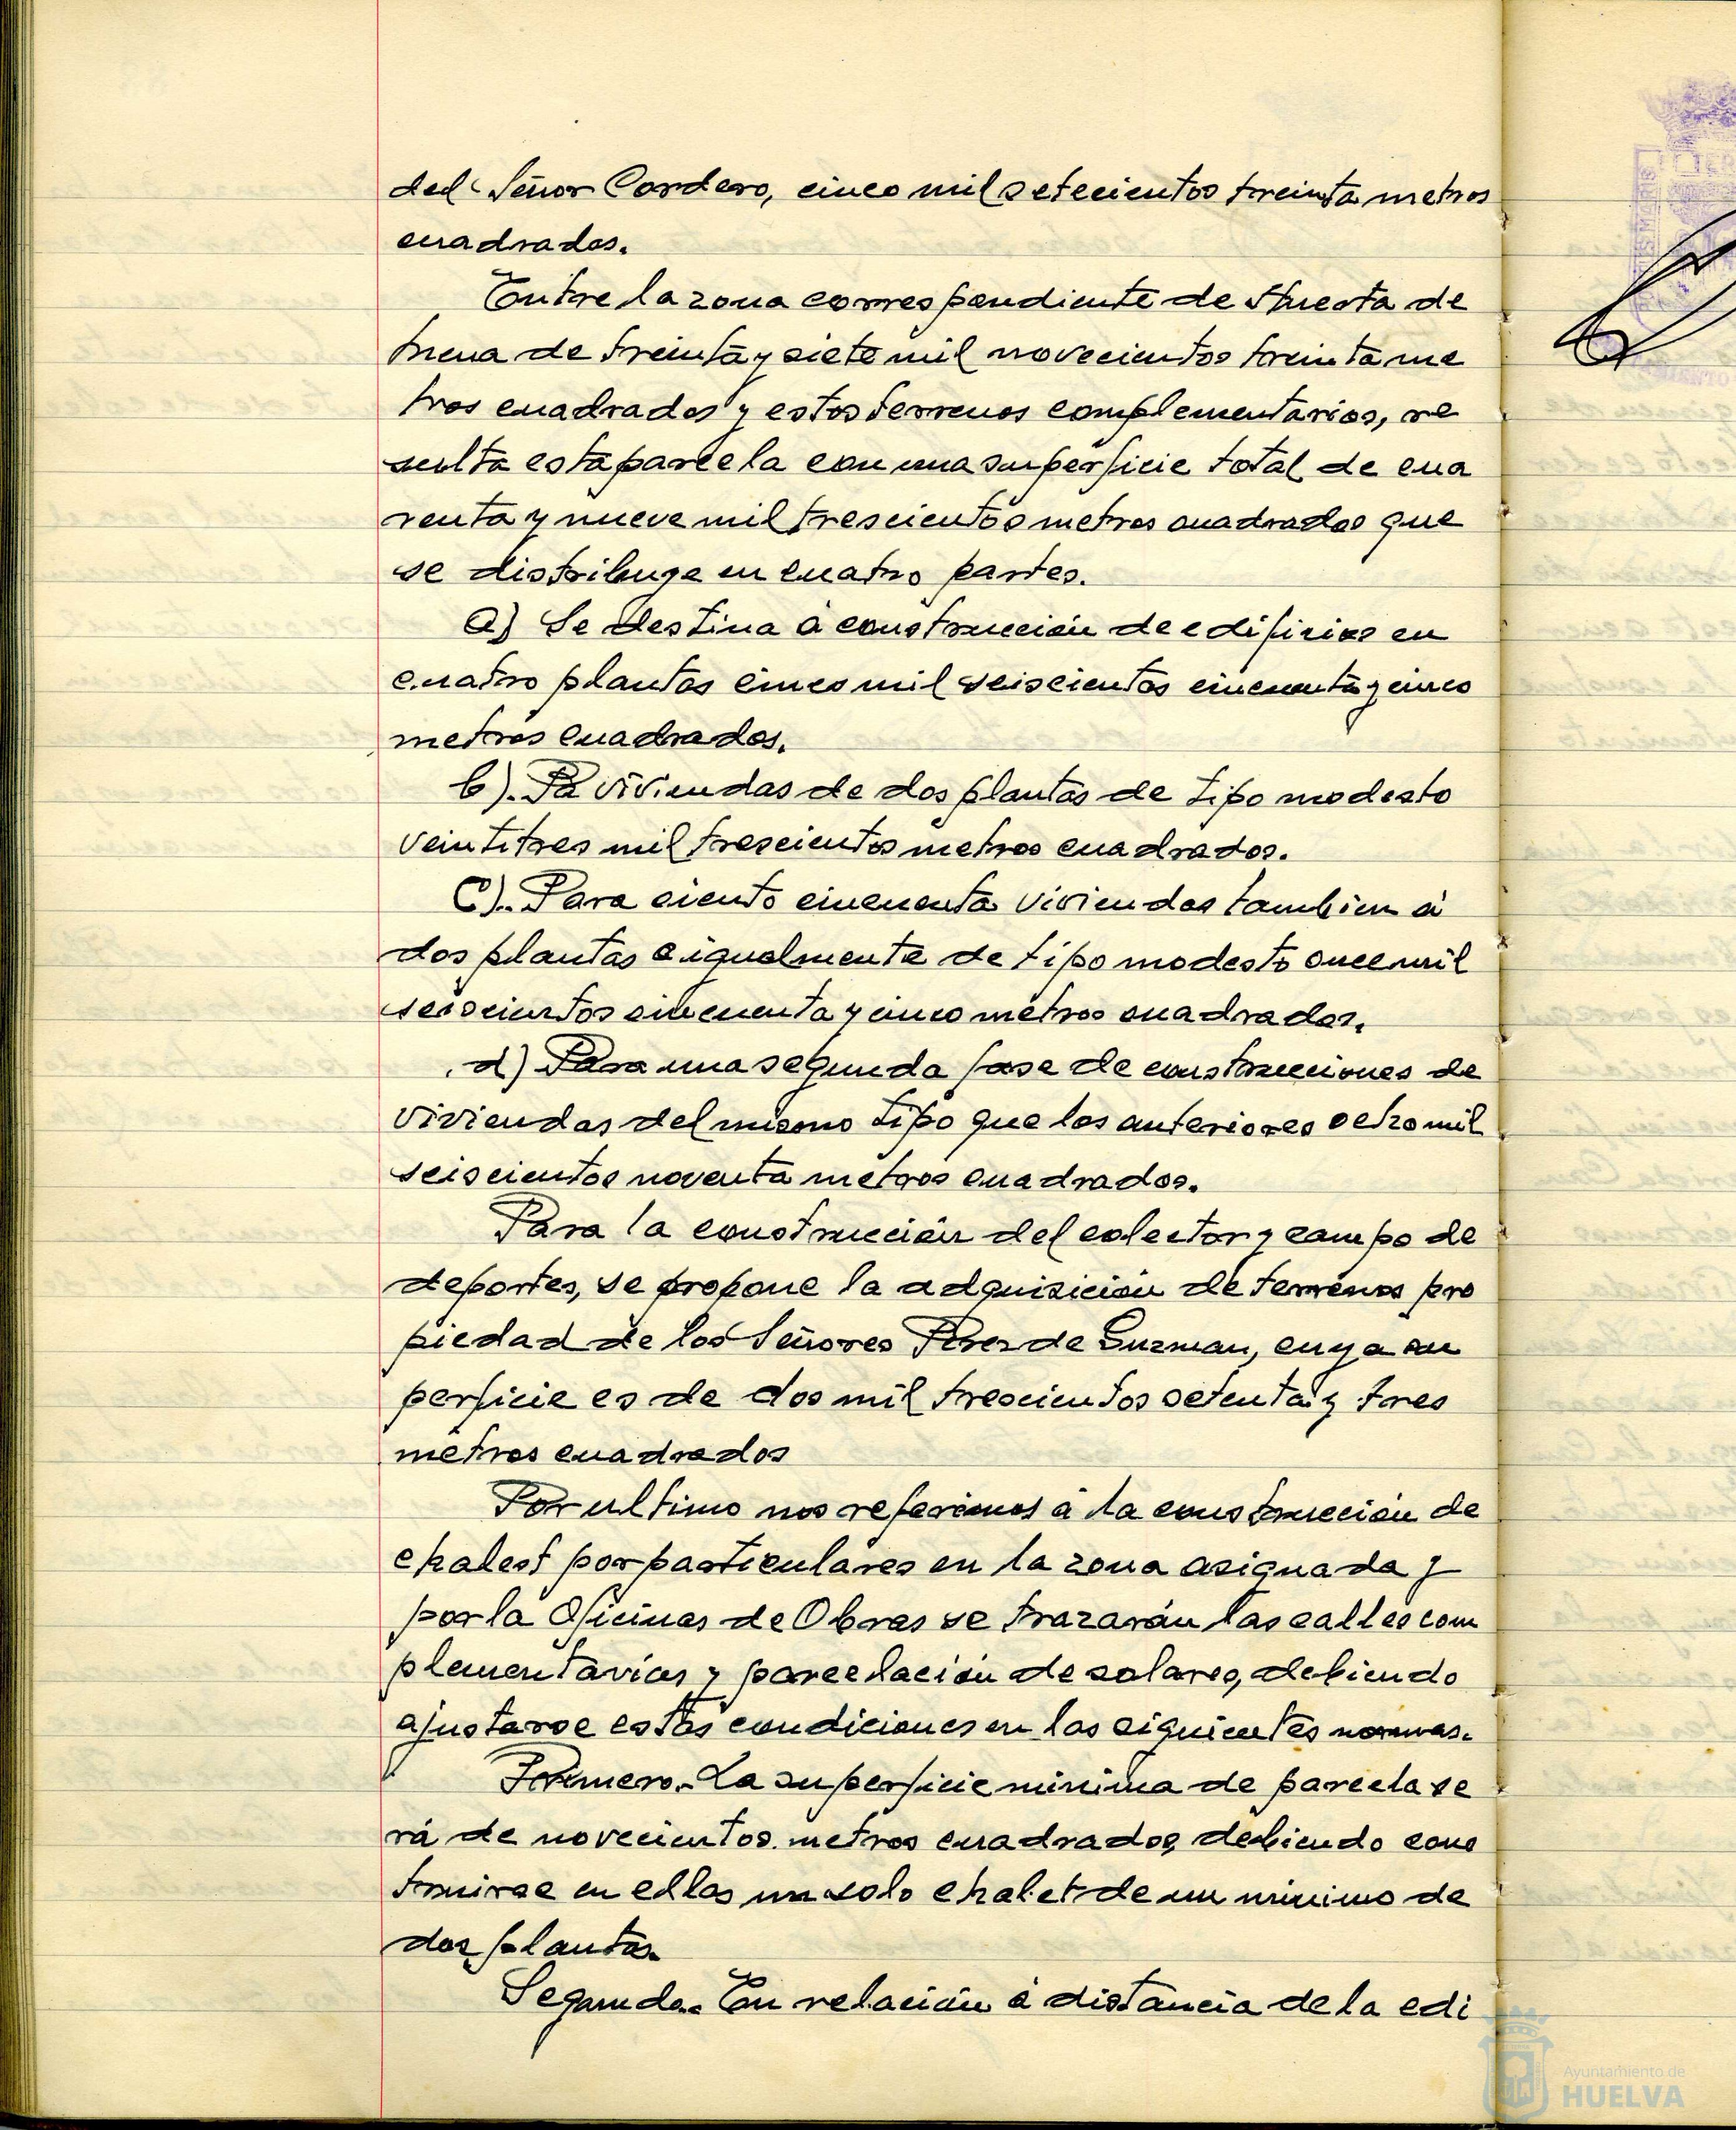 del Señor Cordero, cinco mil setecientos treinta metros
cuadrados.
Entre la zona correspondiente de Huerta de
Mena de treinta y siete mil novecientos treinta me
tros cuadrados y estos terrenos complementarios, re
sulta esta parcela con una superficie total de cua
renta y nueve mil trescientos metros cuadrados que
se distribuye en cuatro partes.
a) Se destina à construcción de edificios en
cuatro plantas cinco mil seiscientos cincuenta y cinco
metros cuadrados.
b). Pa viviendas de dos plantas de tipo modesto
veintitres mil trescientos metros cuadrados.
C).. Para ciento cincuenta viviendas tambien à
dos plantas e igualmente de tipo modesto once mil
seiscientos cincuenta y cinco metros cuadrados.
d) Para una segunda fase de construcciones de
viviendas del mismo tipo que las anteriores ocho mil
seiscientos noventa metros cuadrados.
Para la construcción del colector y campo de
deportes, se propone la adquisición de terrenos pro
piedad de los Señores Perez de Guzman, cuya su
perficie es de dos mil trescientos setenta y tres
metros cuadrados
Por ultimo nos referimos à la construcción de
chalest por particulares en la zona asignada y
por la Oficinas de Obras se trazarán las calles com
plementarias y parcelación de solares, debiendo
ajustarse estas condiciones en las siguientes normas.
Primero.- La superficie minima de parcela se
rá de novecientos metros cuadrados, debiendo cons
truirse en ellas un solo chalet de un minimo de
dos plantas.
Segunda. En relación à distancia de la edi
Ayuntamiento de
HUELVA